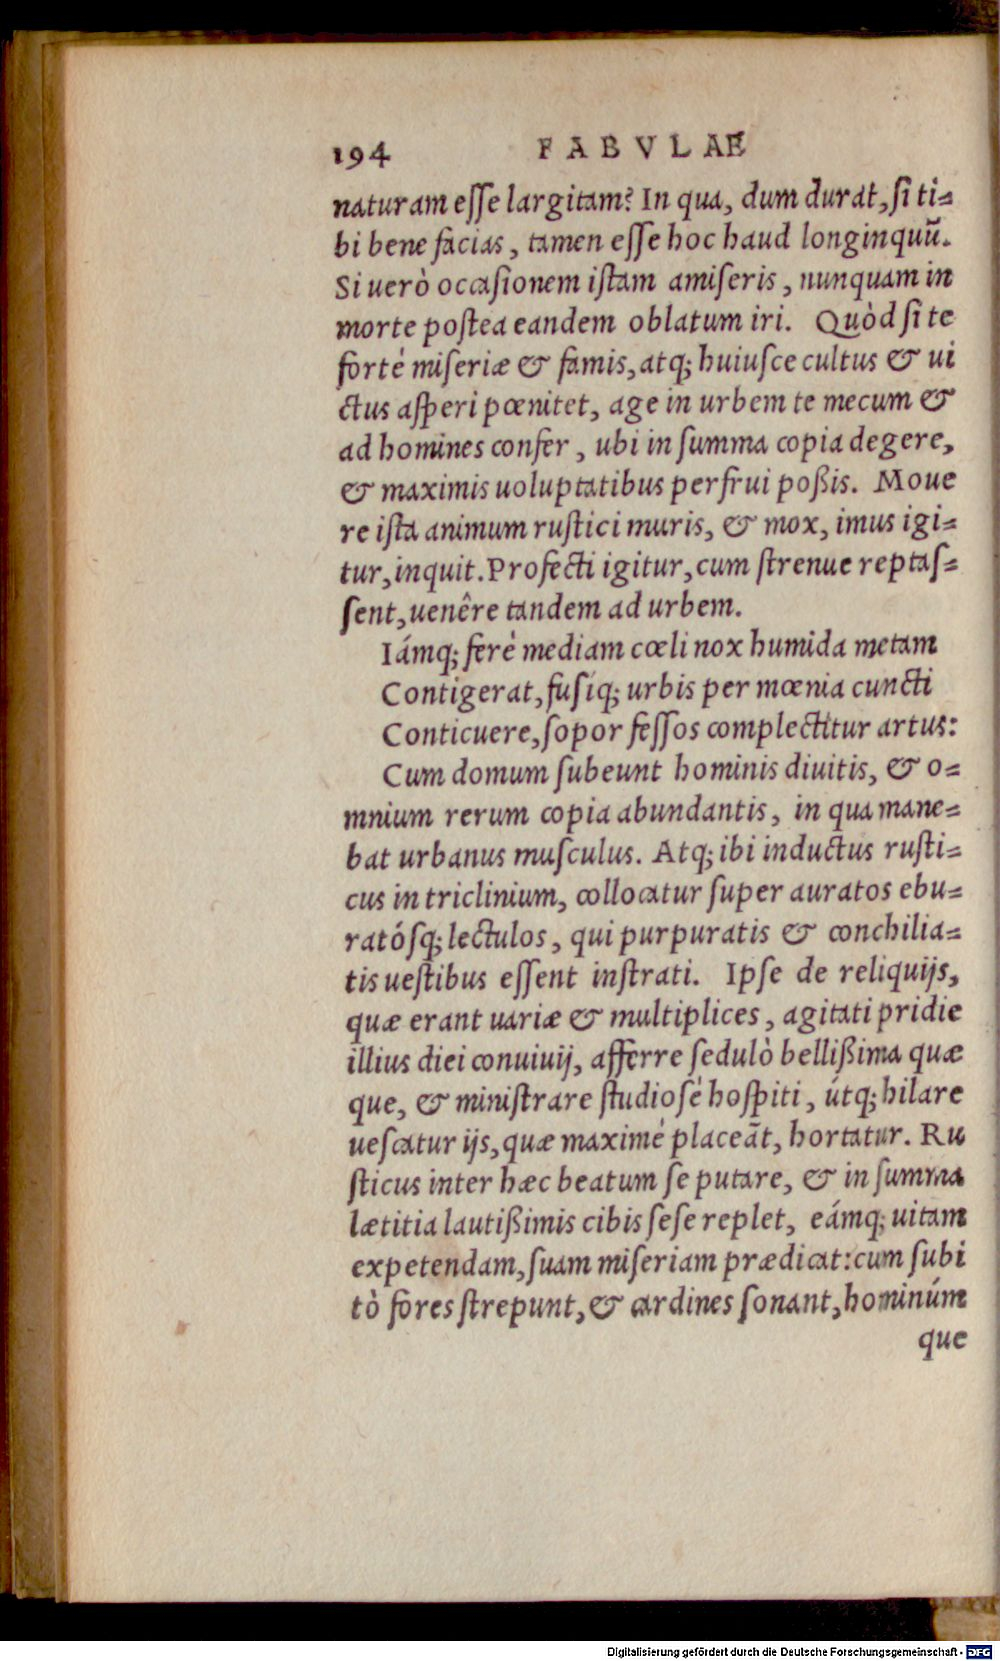 194 FABVLAE
naturam eſſe largitam? In qua, dum durat, ſi ti=
bi bene facias, tamen eſſe hoc haud longinquũ.
Si uerò occaſionem iſtam amiſeris, nunquam in
morte poſtea eandem oblatum iri. Quòd ſi te
fortè miſeriæ & famis, atq; huiuſce cultus & ui
ctus aſperi pœnitet, age in urbem te mecum &
ad homines confer, ubi in ſumma copia degere,
& maximis uoluptatibus perfrui poßis. Moue
re iſta animum ruſtici muris, & mox, imus igi=
tur, inquit. Profecti igitur, cum ſtrenue reptaſ=
ſent, uenêre tandem ad urbem.
Iámq; ferè mediam cœli nox humida metam
Contigerat, fusíq; urbis per mœnia cuncti
Conticuere, ſopor feſſos complectitur artus:
Cum domum ſubeunt hominis diuitis, & o=
mnium rerum copia abundantis, in qua mane=
bat urbanus muſculus. Atq; ibi inductus ruſti=
cus in triclinium, collocatur ſuper auratos ebu=
ratóſq; lectulos, qui purpuratis & conchilia=
tis ueſtibus eſſent inſtrati. Ipſe de reliquijs,
quæ erant uariæ & multiplices, agitati pridie
illius diei conuiuij, afferre ſedulò bellißima quæ
que, & miniſtrare ſtudioſè hoſpiti, útq; hilare
ueſcatur ijs, quæ maximè placeãt, hortatur. Ru
ſticus inter hæc beatum ſe putare, & in ſumma
lætitia lautißimis cibis ſeſe replet, eámq; uitam
expetendam, ſuam miſeriam prædicat: cum ſubi
tò fores ſtrepunt, & cardines ſonant, hominúm
que
Digitalisierung gefördert durch die Deutsche Forschungsgemeinschaft - DFG